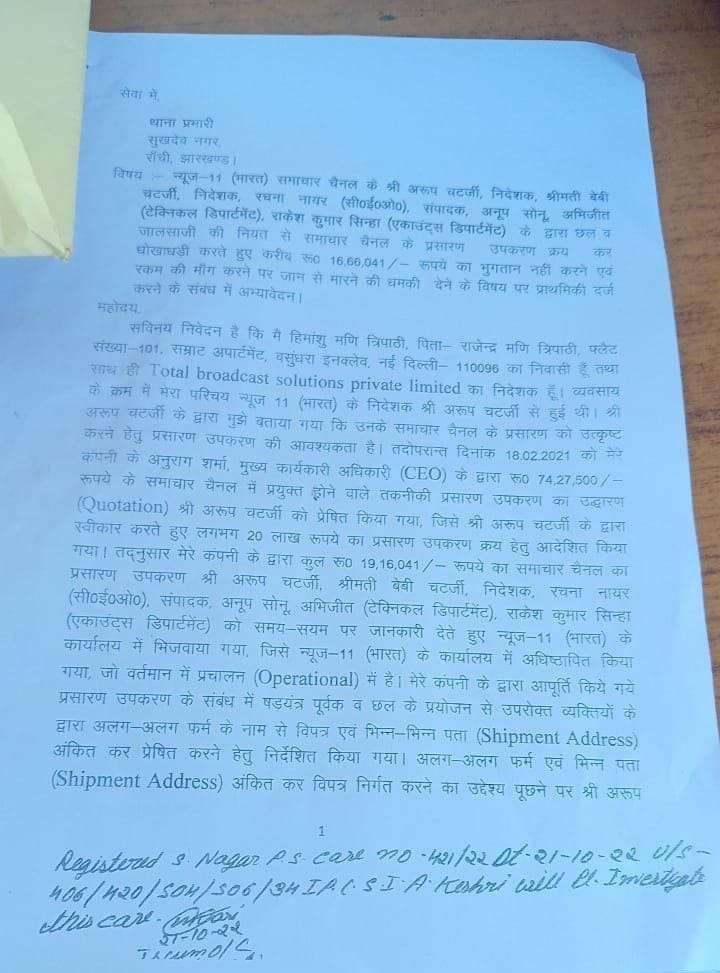 सेवा में,
थाना प्रभारी
सुखदेव नगर,
राँची, झारखण्ड।
विषय :– न्यूज–11 (भारत) समाचार चैनल के श्री अरूप चटर्जी, निदेशक, श्रीमती बेबी
चटर्जी, निदेशक, रचना नायर (सी0ई0ओ0), संपादक, अनूप सोनू, अभिजीत
(टेक्निकल डिपार्टमेंट), राकेश कुमार सिन्हा (एकाउंट्स डिपार्टमेंट) के द्वारा छल व
जालसाजी की नियत से समाचार चैनल के प्रसारण उपकरण क्रय कर
धोखाधड़ी करते हुए करीब रू0 16,66,041/– रूपये का भुगतान नहीं करने एवं
रकम की माँग करने पर जान से मारने की धमकी देने के विषय पर प्राथमिकी दर्ज
करने के संबंध में अभ्यावेदन।
महोदय,
सविनय निवेदन है कि मै हिमांशु मणि त्रिपाठी, पिता– राजेन्द्र मणि त्रिपाठी, फ्लैट
संख्या–101, सम्राट अपार्टमेंट, वसुंधरा इनक्लेव, नई दिल्ली– 110096 का निवासी हूँ तथा
साथ ही Total broadcast solutions private limited का निदेशक हूँ। व्यवसाय
के क्रम में मेरा परिचय न्यूज 11 (भारत) के निदेशक श्री अरूप चटर्जी से हुई थी। श्री
अरूप चटर्जी के द्वारा मुझे बताया गया कि उनके समाचार चैनल के प्रसारण को उत्कृष्ट
करने हेतु प्रसारण उपकरण की आवश्यकता है। तदोपरान्त दिनांक 18.02.2021 को मेरे
कंपनी के अनुराग शर्मा, मुख्य कार्यकारी अधिकारी (CEO) के द्वारा रू0 74,27,500/–
रूपये के समाचार चैनल में प्रयुक्त होने वाले तकनीकी प्रसारण उपकरण का उद्धारण
(Quotation) श्री अरूप चटर्जी को प्रेषित किया गया, जिसे श्री अरूप चटर्जी के द्वारा
स्वीकार करते हुए लगभग 20 लाख रूपये का प्रसारण उपकरण क्रय हेतु आदेशित किया
गया। तद्नुसार मेरे कंपनी के द्वारा कुल रू0 19,16,041/– रूपये का समाचार चैनल का
प्रसारण उपकरण श्री अरूप चटर्जी, श्रीमती बेबी चटर्जी, निदेशक, रचना नायर
(सी0ई0ओ0), संपादक, अनूप सोनू, अभिजीत (टेक्निकल डिपार्टमेंट), राकेश कुमार सिन्हा
(एकाउंट्स डिपार्टमेंट) को समय–सयम पर जानकारी देते हुए न्यूज–11 (भारत) के
कार्यालय में भिजवाया गया, जिसे न्यूज–11 (भारत) के कार्यालय में अधिष्ठापित किया
गया, जो वर्तमान में प्रचालन (Operational) में है। मेरे कंपनी के द्वारा आपूर्ति किये गये
प्रसारण उपकरण के संबंध में षड़यंत्र पूर्वक व छल के प्रयोजन से उपरोक्त व्यक्तियों के
द्वारा अलग–अलग फर्म के नाम से विपत्र एवं भिन्न–भिन्न पता (Shipment Address)
अंकित कर प्रेषित करने हेतु निर्देशित किया गया। अलग–अलग फर्म एवं भिन्न पता
(Shipment Address) अंकित कर विपत्र निर्गत करने का उद्देश्य पूछने पर श्री अरूप
1
Registered S. Nagar P.S. Case no - 421/22 Dt - 21-10-22 U/S -
406/420/504/506/34 I.P.C. S.I. A. Keshri will Pl. Investigate
this case.
21-10-22